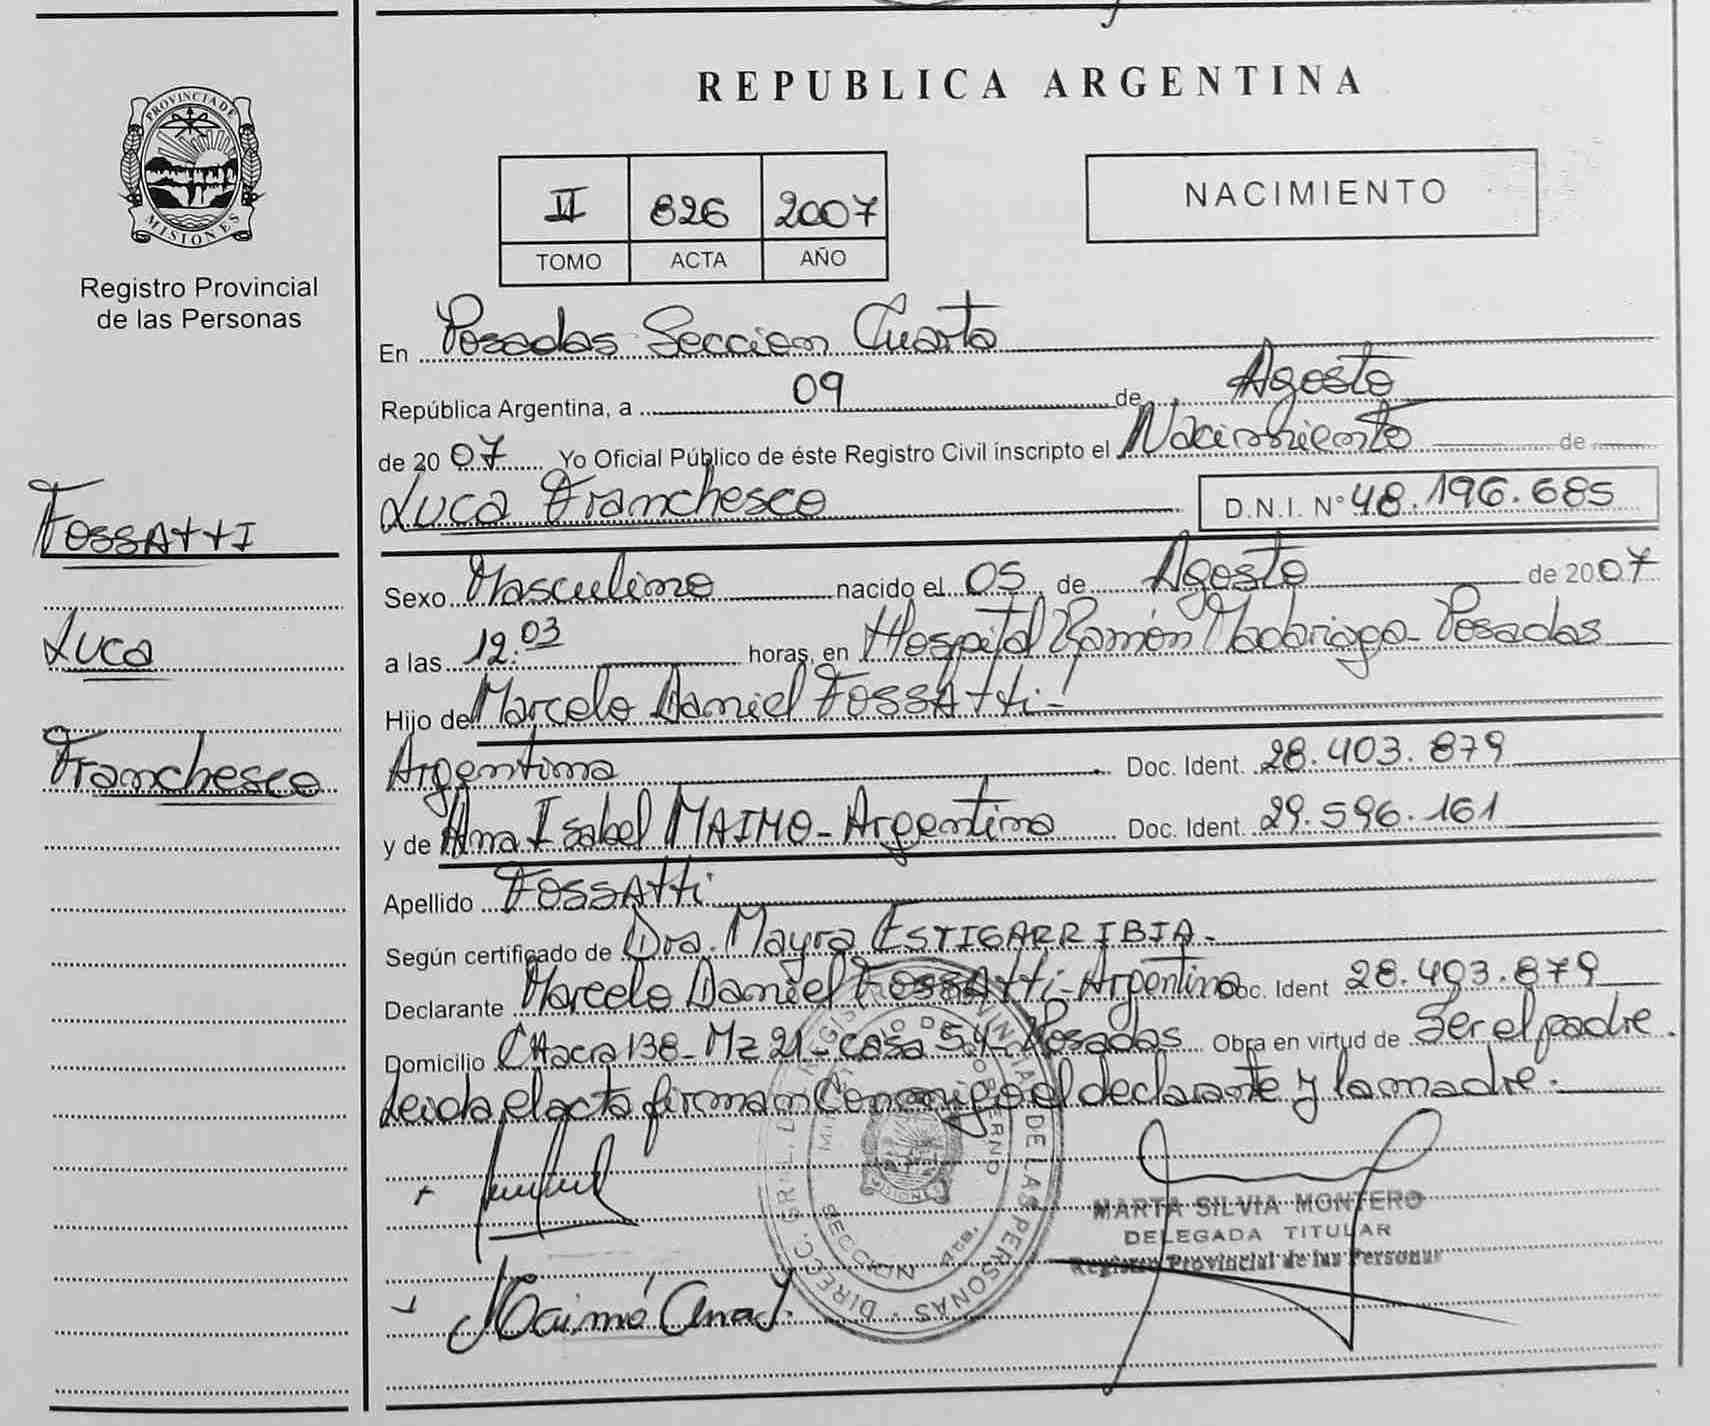 PROVINCIA DE
MISIONES
Registro Provincial
de las Personas
FOSSAttI
Luca
Franchesco
REPUBLICA ARGENTINA
II 826 2007
TOMO ACTA AÑO
NACIMIENTO
En Posadas Seccion Cuarta
República Argentina, a 09 de Agosto
de 20 07 Yo Oficial Público de éste Registro Civil inscripto el Nacimiento de
Luca Franchesco D.N.I. N° 48.196.685
Sexo Masculino nacido el 05 de Agosto de 20 07
a las 12:03 horas, en Hospital Ramón Madariaga - Posadas
Hijo de Marcelo Daniel FOSSAtti-
Argentino Doc. Ident. 28.403.879
y de Ana Isabel MAIMO - Argentina Doc. Ident. 29.596.161
Apellido FOSSAtti
Según certificado de Dra. Mayra ESTIGARRIBIA-
Declarante Marcelo Daniel FOSSAtti - Argentino Doc. Ident 28.403.879
Domicilio CHacra 138 - Mz 21 - casa 54 Posadas Obra en virtud de Ser el padre.
Leida el acta firman Conmigo el declarante y la madre.
DIRECC. GRAL. REGISTRO PROVINCIAL DE LAS PERSONAS
MINISTERIO DE GOBIERNO
SECCION 4ta.
MISIONES
MARTA SILVIA MONTERO
DELEGADA TITULAR
Registro Provincial de las Personas
Maimó Ana I.